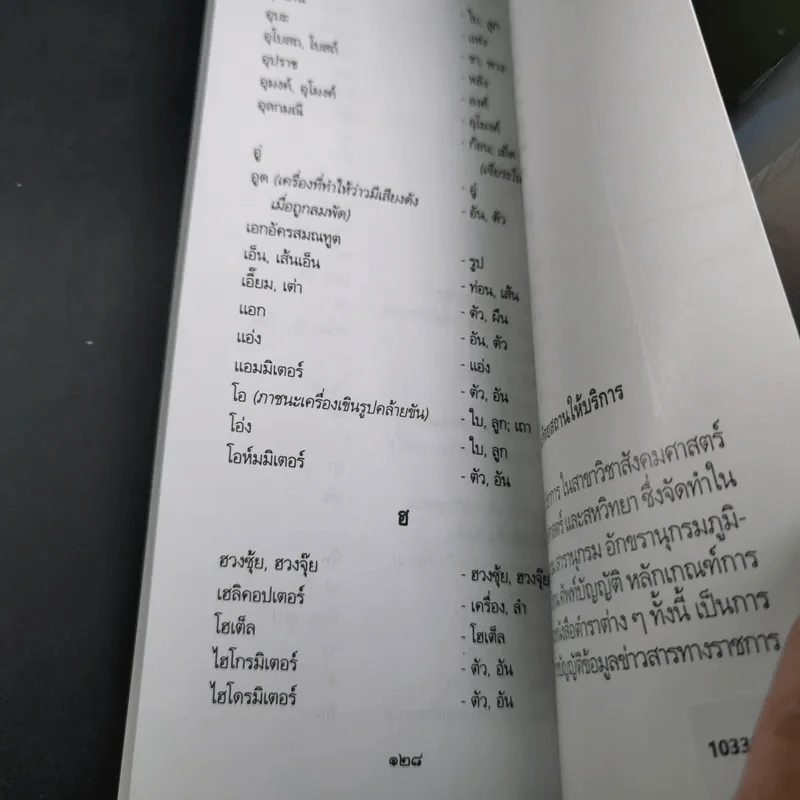 - ใบ, ลูก
- แห่ง
อุบะ
อุโบสถ, โบสถ์ - หลัง
อุปราช - องค์
อุมงค์, อุโมงค์ - อุโมงค์
อุลกมณี - ก้อน; เม็ด
(เจียระไน
อู่ - อู่
อูด (เครื่องที่ทำให้ว่าวมีเสียงดัง - อัน, ตัว
เมื่อถูกลมพัด)
เอกอัครสมณทูต - รูป
เอ็น, เส้นเอ็น - ท่อน, เส้น
เอี๊ยม, เต่า - ตัว, ผืน
แอก - อัน, ตัว
แอ่ง - แอ่ง
แอมมิเตอร์ - ตัว, อัน
โอ (ภาชนะเครื่องเขินรูปคล้ายขัน) - ใบ, ลูก; เถา
โอ่ง - ใบ, ลูก
โอห์มมิเตอร์ - ตัว, อัน
ฮ
ฮวงซุ้ย, ฮวงจุ๊ย - ฮวงซุ้ย, ฮวงจุ๊ย
เฮลิคอปเตอร์ - เครื่อง, ลำ
โฮเต็ล - โฮเต็ล
ไฮโกรมิเตอร์ - ตัว, อัน
ไฮโดรมิเตอร์ - ตัว, อัน
๑๒๘
สถานให้บริการ
การ ในสาขาวิชาสังคมศาสตร์
ศาสตร์ และสหวิทยา ซึ่งจัดทำใน
สารานุกรม อักขรานุกรมภูมิ-
ศัพท์บัญญัติ หลักเกณฑ์การ
หนังสือตำราต่าง ๆ ทั้งนี้ เป็นการ
บัญญัติข้อมูลข่าวสารทางราชการ
1033